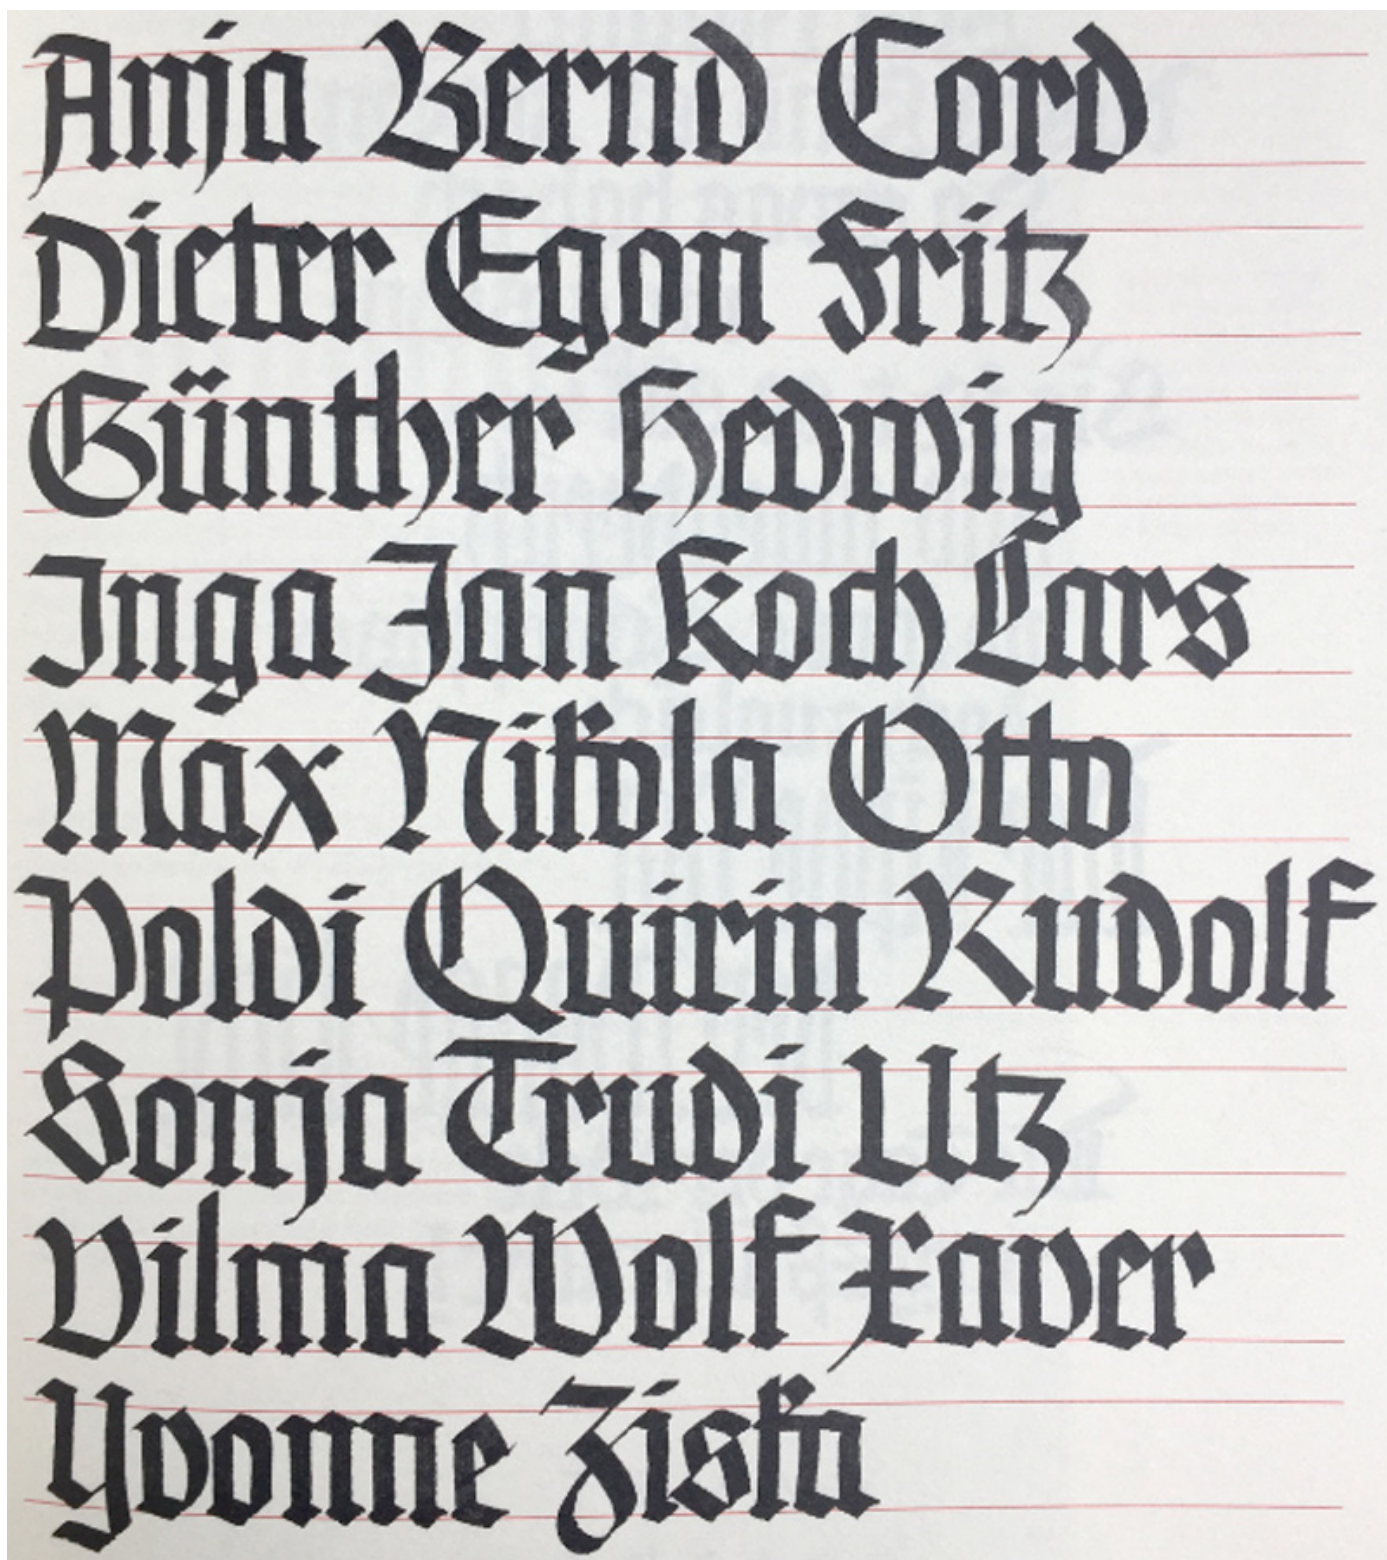 Anja Bernd Cord
Dieter Egon Fritz
Günther Hedwig
Inga Jan Koch Lars
Max Nikola Otto
Poldi Quirin Rudolf
Sonja Trudi Utz
Vilma Wolf Xaver
Yvonne Ziska